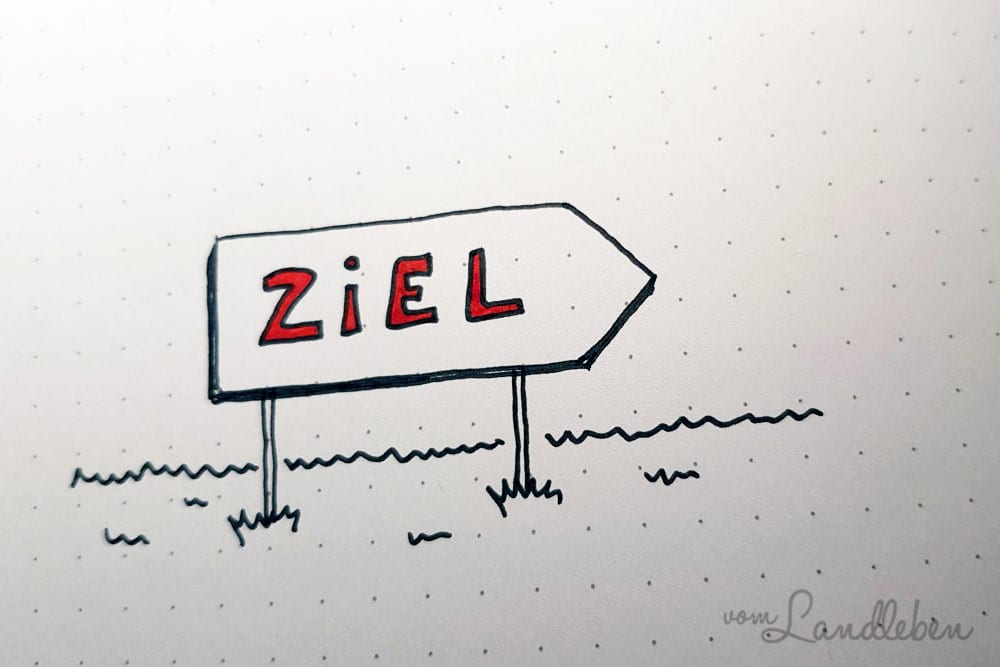 ZiEL
vom Landleben